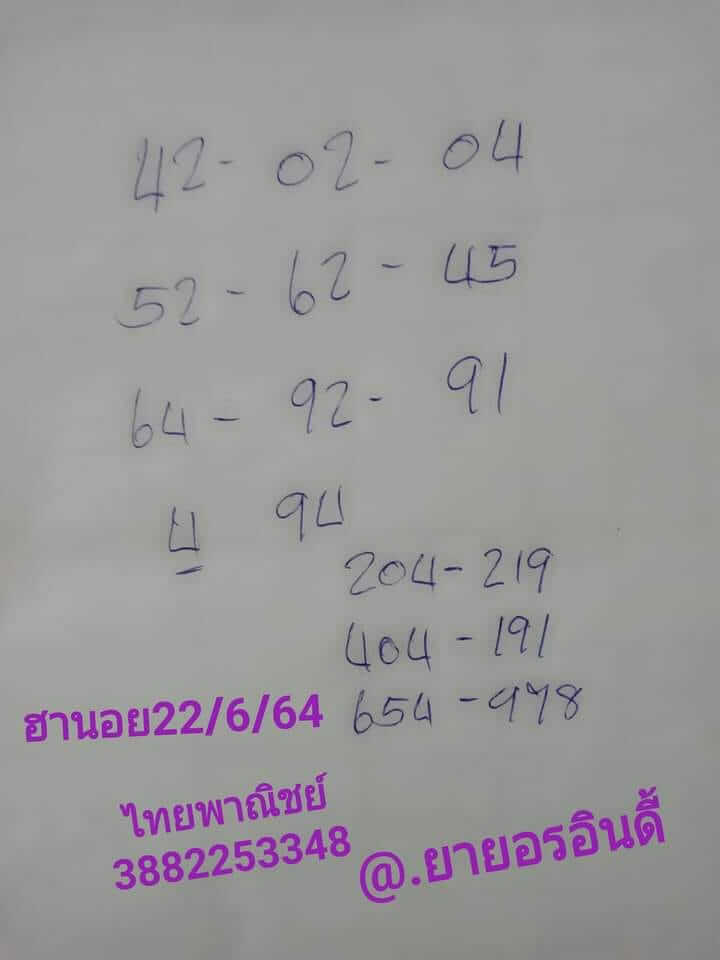 42- 02- 04
52- 62- 45
64- 92- 91
4 94
204-219
404-191
654-978
ฮานอย22/6/64
ไทยพาณิชย์
3882253348
@.ยายอรอินดี้